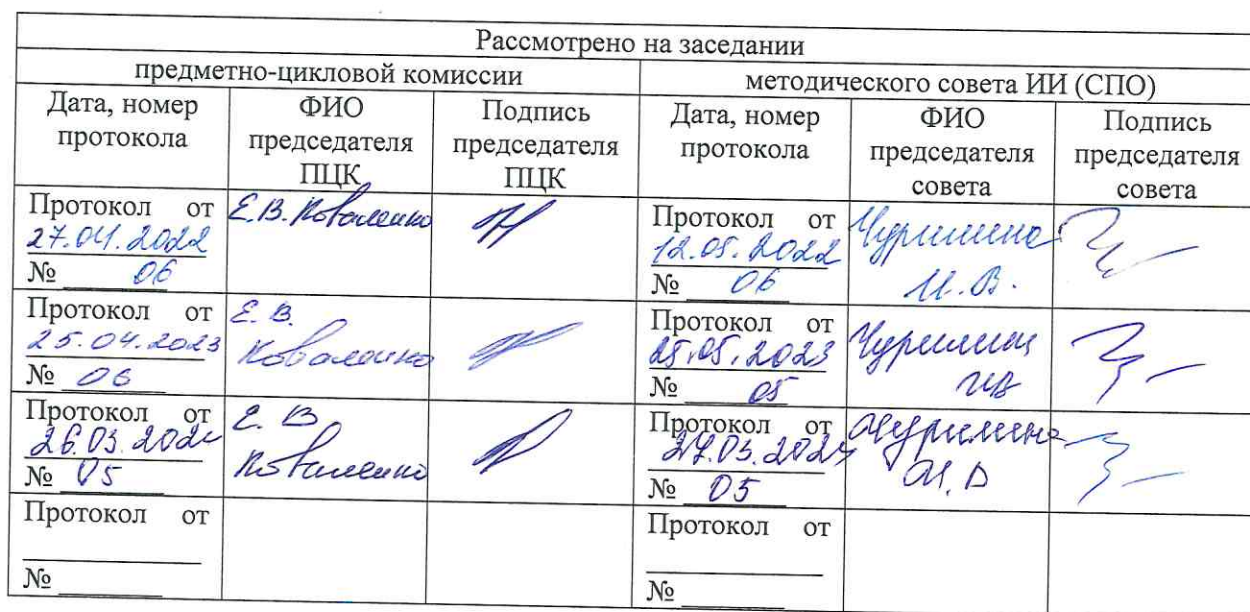 Рассмотрено на заседании
предметно-цикловой комиссии
методического совета ИИ (СПО)
Дата, номер
протокола
ФИО
председателя
ПЦК
Подпись
председателя
ПЦК
Дата, номер
протокола
ФИО
председателя
совета
Подпись
председателя
совета
Протокол от
27.04.2022
№ 06
Е.В. Коваленко
Протокол от
12.05.2022
№ 06
Чурилина
И.В.
Протокол от
25.04.2023
№ 06
Е. В.
Коваленко
Протокол от
25.05.2023
№ 05
Чурилина
ИВ
Протокол от
26.03.202
№ 05
Е. В
Коваленко
Протокол от
27.03.2024
№ 05
Чурилина
И. В
Протокол от
№
Протокол от
№